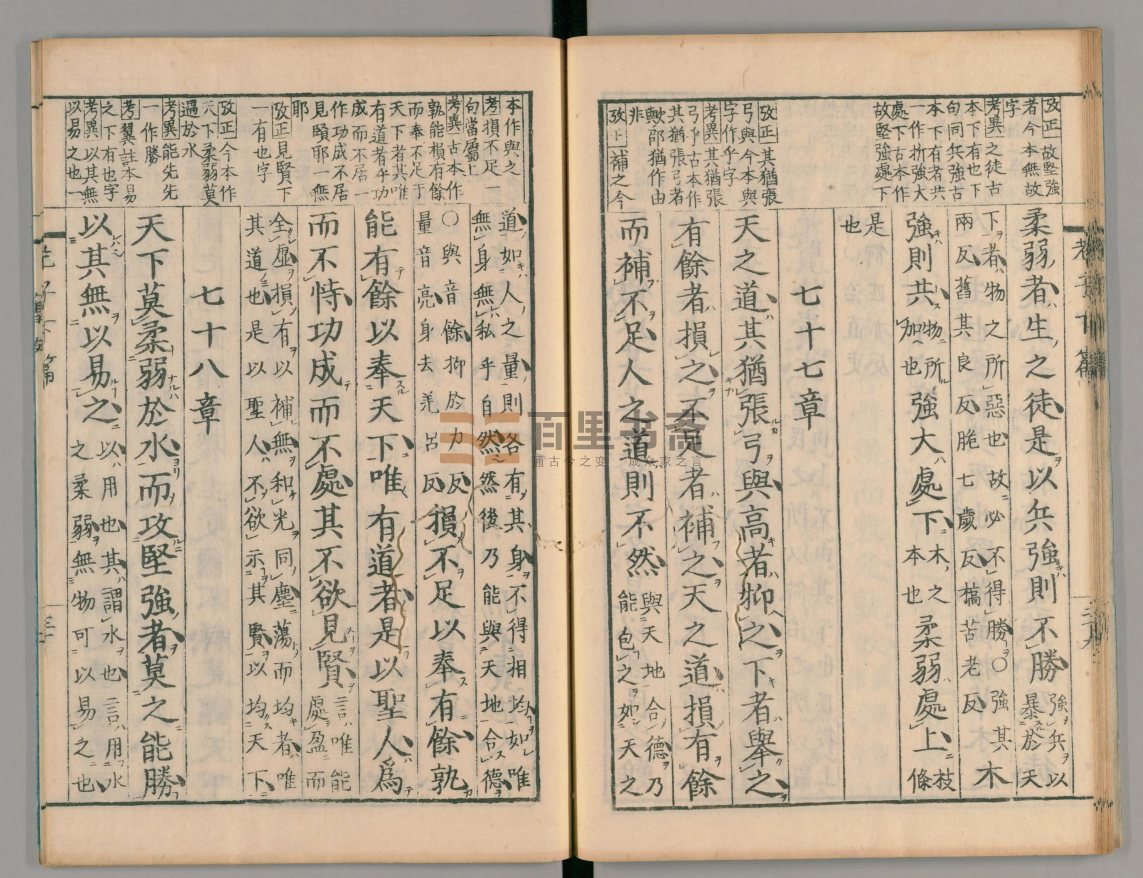 攷正一故堅強
者今本無故
字
考異之徒古
本下有也下
句同兵強古
本下有者共
一作折強大
處下古本作
故堅強處下
攷正其猶張
弓與今本與
字作乎字
考異其猶張
弓乎古本作
其猶張弓者
歟邵猶作由
非
攷正補之今
柔弱者生之徒是以兵強則不勝
強兵以
暴於天
下者物之所惡也故必不得勝○強其
兩反舊其良反脆七歲反槁苦老反
木
強則共
物所
加也
強大處下
木之
本也
柔弱處上
枝條
是
也
七十七章
天之道其猶張弓與高者抑之下者舉之
有餘者損之不足者補之天之道損有餘
而補不足人之道則不然
與天地合德乃
能包之如天之
本作與之
考損不足一
句當屬上
考異古本作
孰能損有餘
而奉不足于
天下者其唯
有道者乎功
成而不居一
作功成不居
見賢耶一無
耶
攷正見賢下
一有也字
攷正今本作
天下柔弱莫
過於水
考異能先先
一作勝
考翼註本易
之下有也字
考異以其無
以易之也一
道如人之量則各有其身不得相均如唯
無身無私乎自然然後乃能與天地合德
○與音餘抑於力反
量音亮身去羌呂反
損不足以奉有餘孰
能有餘以奉天下唯有道者是以聖人為
而不恃功成而不處其不欲見賢
言唯能
處盈而
全虛損有以補無和光同塵蕩而均者唯
其道也是以聖人不欲示其賢以均天下
七十八章
天下莫柔弱於水而攻堅強者莫之能勝
以其無以易之
以用也其謂水也言用水
之柔弱無物可以易之也
老子
下篇
百里书斋
通古今之变 成众家之言